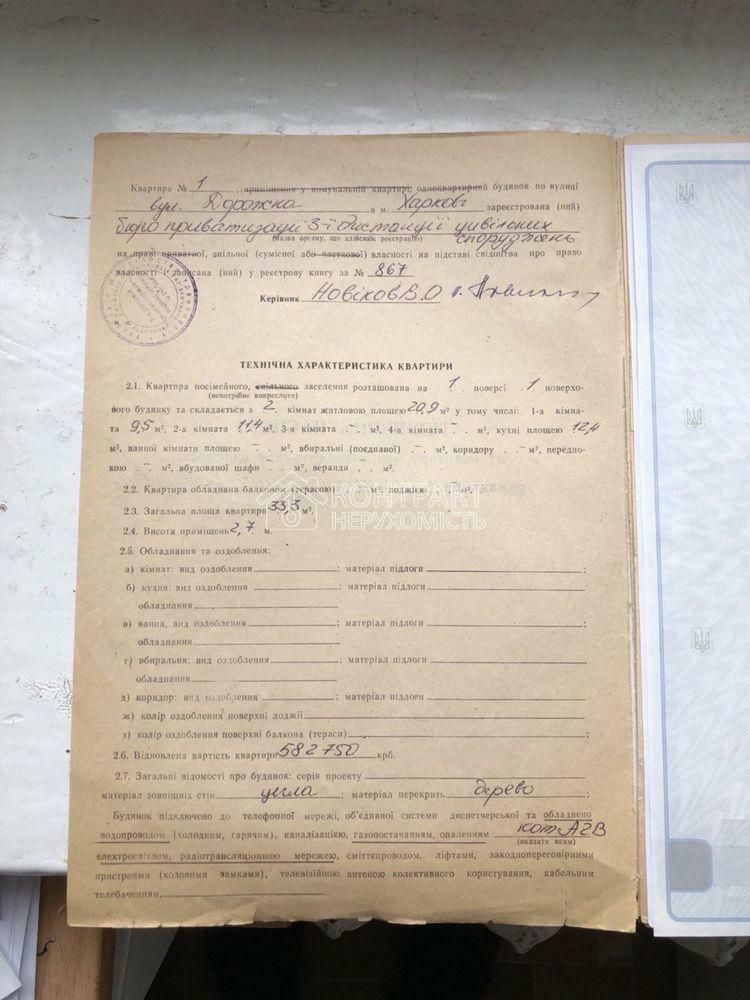 Квартира № 1 , приміщення у комунальній квартирі, одноквартирний будинок по вулиці
вул. Дорожна в м. Харкові зареєстрована (ний)
бюро приватизації 3-ї дистанції цивільних
(назва органу, що здійснює реєстрацію) споруджень
на праві приватної, спільної (сумісної або часткової) власності на підставі свідоцтва про право
власності і записана (ний) у реєстрову книгу за № 867
Керівник Новіков В.О
м. п.
ТЕХНІЧНА ХАРАКТЕРИСТИКА КВАРТИРИ
2.1. Квартира посімейного, спільного заселення розташована на 1 поверсі 1 поверхо-
(непотрібне викреслити)
вого будинку та складається з 2 кімнат житловою площею 20,9 м², у тому числі: 1-а кімна-
та 9,5 м², 2-а кімната 11,4 м², 3-я кімната - м², 4-а кімната - м², кухні площею 12,4
м², ванної кімнати площею - м², вбиральні (поєднаної) - м², коридору - м², передпо-
кою - м², вбудованої шафи - м², веранди м².
2.2. Квартира обладнана балконом (терасою) м², лоджією м².
2.3. Загальна площа квартири 33,3 м².
2.4. Висота приміщень 2,7 м.
КОНТРАКТ
НЕРУХОМІСТЬ
2.5. Обладнання та оздоблення:
а) кімнат: вид оздоблення ; матеріал підлоги ;
б) кухня: вид оздоблення ; матеріал підлоги
обладнання
в) ванна, вид оздоблення ; матеріал підлоги ;
обладнання
г) вбиральня: вид оздоблення ; матеріал підлоги
обладнання
д) коридор: вид оздоблення ; матеріал підлоги
ж) колір оздоблення поверхні лоджії
з) колір оздоблення поверхні балкона (тераси)
2.6. Відновлена вартість квартири 582750 крб.
2.7. Загальні відомості про будинок: серія проекту
матеріал зовнішніх стін цегла ; матеріал перекрить дерево ;
Будинок підключено до телефонної мережі, об'єднаної системи диспетчерської та обладнено
водопроводом (холодним, гарячим), каналізацією, газопостачанням, опаленням кот. АГВ
(вказати яким)
електросвітлом, радіотрансляційною мережею, сміттєпроводом, ліфтами, закодноперегові́рними
пристроями (кодовими замками), телевізійною антеною колективного користування, кабельним
телебаченням.